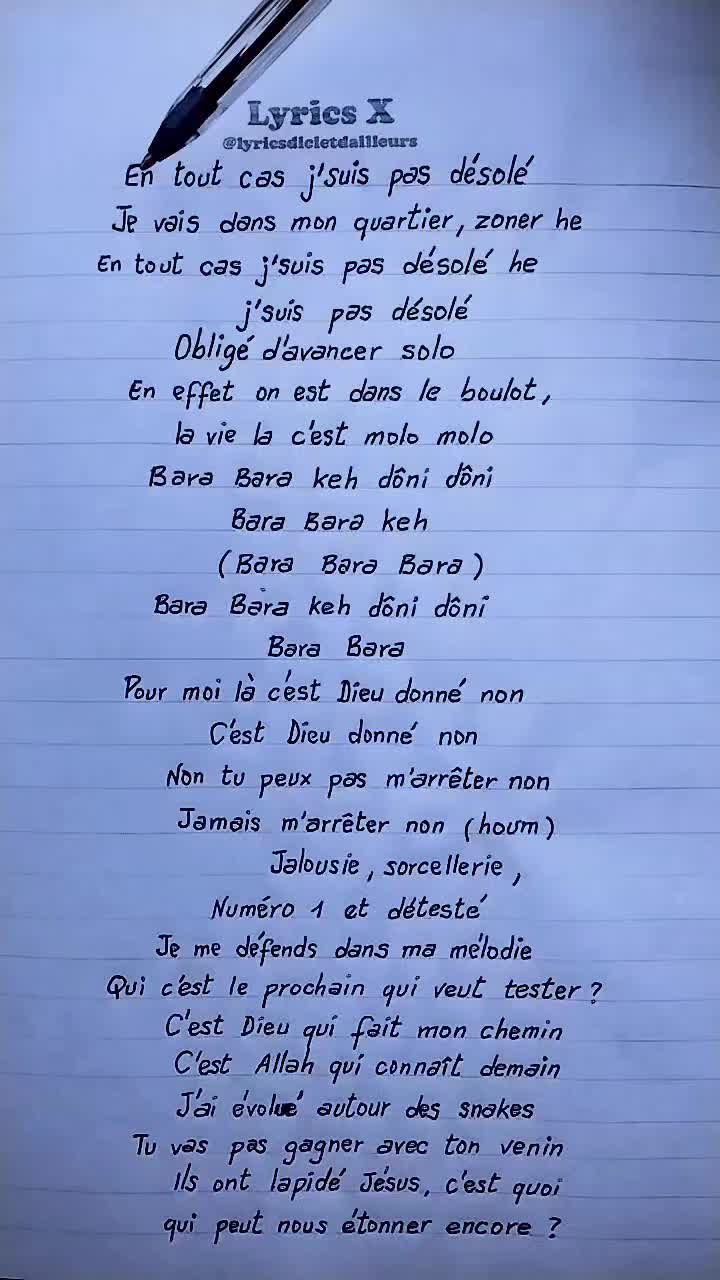 Lyrics X
@lyricsdicietdailleurs
En tout cas j'suis pas désolé
Je vais dans mon quartier, zoner he
En tout cas j'suis pas désolé he
j'suis pas désolé
Obligé d'avancer solo
En effet on est dans le boulot,
la vie la c'est molo molo
Bara Bara keh dôni dôni
Bara Bara keh
(Bara Bara Bara)
Bara Bara keh dôni dôni
Bara Bara
Pour moi là c'est Dieu donné non
C'est Dieu donné non
Non tu peux pas m'arrêter non
Jamais m'arrêter non (houm)
Jalousie, sorcellerie,
Numéro 1 et détesté
Je me défends dans ma mélodie
Qui c'est le prochain qui veut tester ?
C'est Dieu qui fait mon chemin
C'est Allah qui connaît demain
J'ai évolué autour des snakes
Tu vas pas gagner avec ton venin
Ils ont lapidé Jésus, c'est quoi
qui peut nous étonner encore ?